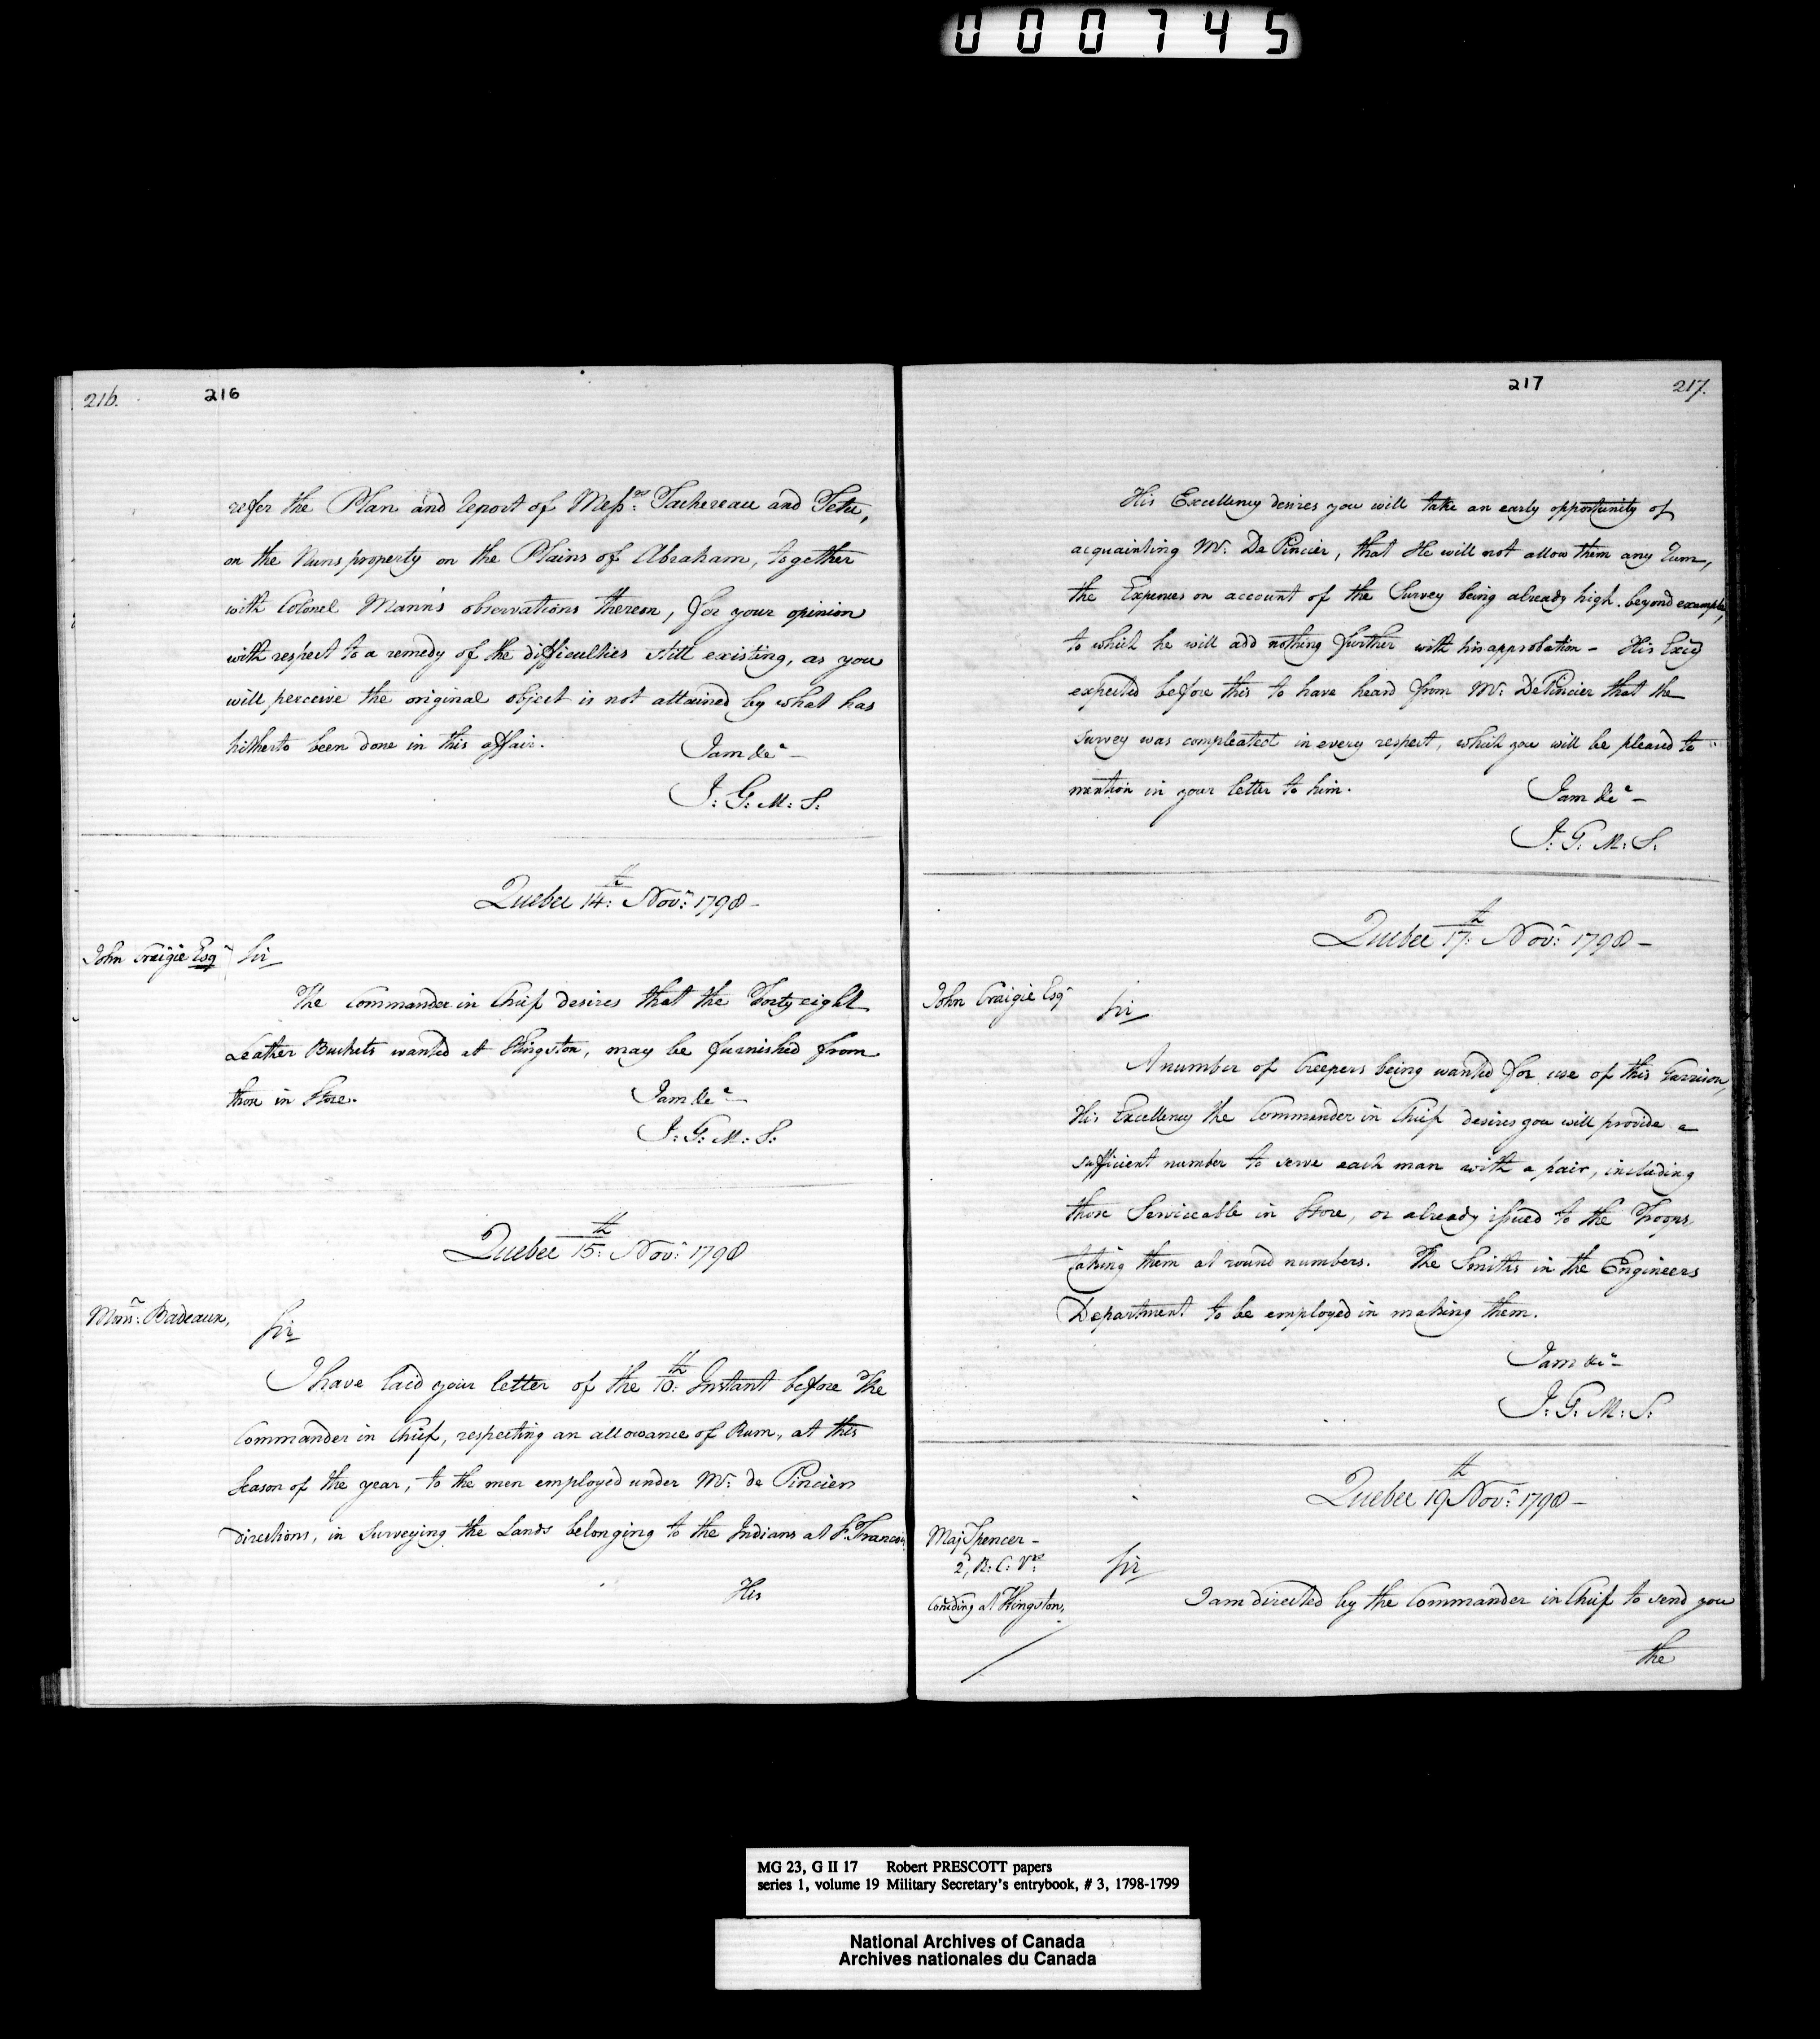 000745
216. 216
refer the Plan and Report of Messrs: Tachereau and Tetu,
on the Nuns property on the Plains of Abraham, together
with Colonel Mann's observations thereon, for your opinion
with respect to a remedy of the difficulties still existing, as you
will perceive the original object is not attained by what has
hitherto been done in this affair. I am &ca —
J: G: M: S:
Quebec 14th: Novr: 1798 —
John Craigie Esqr Sir
The Commander in Chief desires that the Forty eight
Leather Buckets wanted at Kingston, may be furnished from
those in Store. I am &ca —
J: G: M: S:
Quebec 15th: Novr: 1798
Monr: Badeaux, Sir
I have laid your letter of the 10th: Instant before The
Commander in Chief, respecting an allowance of Rum, at this
Season of the year, to the men employed under Mr: de Pinciers
directions, in Surveying the Lands belonging to the Indians at St. Francois,
His
217 217.
His Excellency desires you will take an early opportunity of
acquainting Mr: De Pincier, that He will not allow them any Rum,
the Expenses on account of the Survey being already high beyond example,
to which he will add nothing further with his approbation — His Excy
expected before this to have heard from Mr: DePincier that the
Survey was compleated in every respect, which you will be pleased to
mention in your letter to him. I am &ca —
J: G: M: S:
Quebec 17th: Novr: 1798 —
John Craigie Esqr Sir
A number of Creepers being wanted for use of this Garrison,
His Excellency the Commander in Chief desires you will provide a
sufficient number to serve each man with a pair, including
those Serviceable in Store, or already issued to the Troops,
taking them at round numbers. The Smiths in the Engineers
Department to be employed in making them.
I am &ca —
J: G: M: S:
Quebec 19th Novr: 1798 —
Maj Spencer —
2d, R: C: Vrs:
Comding at Kingston,
Sir
I am directed by the Commander in Chief to send you
the
MG 23, G II 17 Robert PRESCOTT papers
series 1, volume 19 Military Secretary's entrybook, # 3, 1798-1799
National Archives of Canada
Archives nationales du Canada